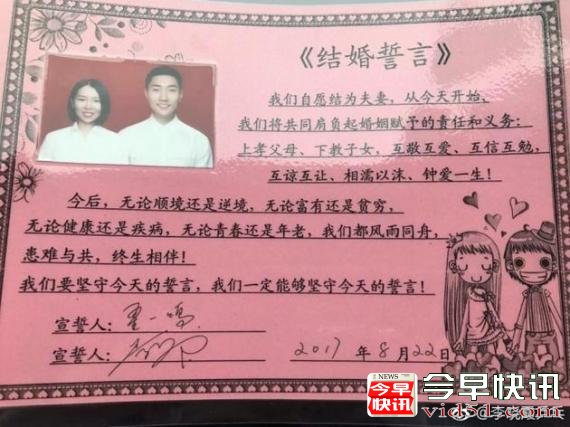 《结婚誓言》
我们自愿结为夫妻，从今天开始，
我们将共同肩负起婚姻赋予的责任和义务：
上孝父母、下教子女，互敬互爱、互信互勉，
互谅互让、相濡以沫、钟爱一生！
今后，无论顺境还是逆境，无论富有还是贫穷，
无论健康还是疾病，无论青春还是年老，我们都风雨同舟，
患难与共，终生相伴！
我们要坚守今天的誓言，我们一定能够坚守今天的誓言！
宣誓人：
宣誓人：
2017 年 8 月 22 日
NEWS
今早快讯
今早快讯